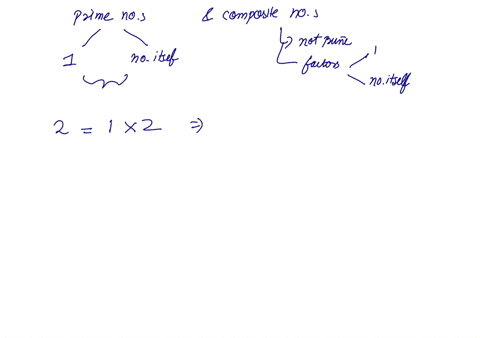 prime no.s & composite no.s
not prime
1 no. itself factors 1
no. itself
2 = 1 × 2 ⇒